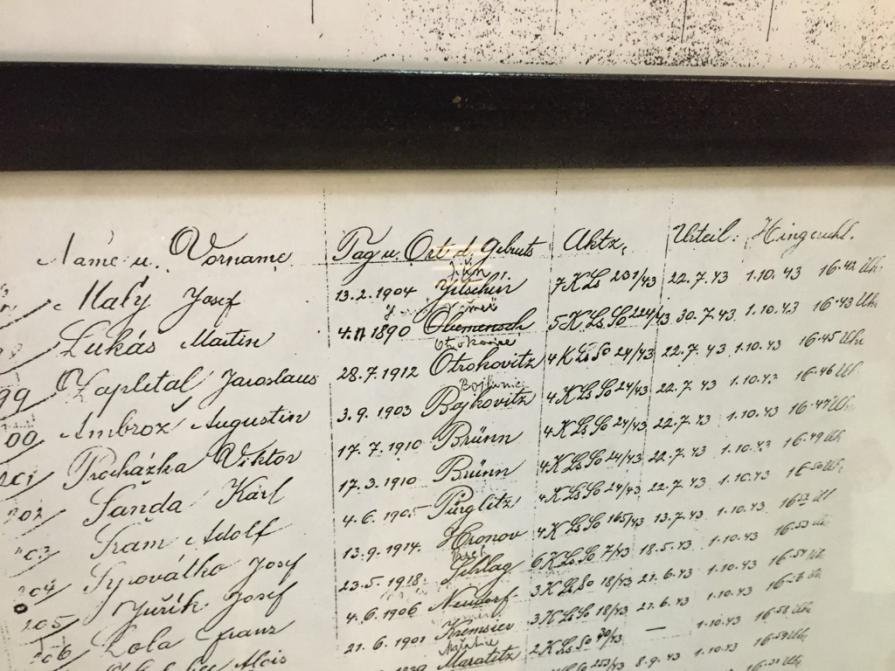 Name u. Vorname Tag u. Ort d. Geburts Aktz. Urteil: Hingericht.
Malý Josef 13.2.1904 Jitschin 7 KLs 201/43 22.7.43 1.10.43 16.42 Uhr
Lukás Martin 1890 5 KLs So 224/43 30.7.43 1.10.43 16.43 Uhr
Otrokovice
99 Zapletal Jaroslaus 28.7.1912 Otrokovitz 4 KLs So 24/43 22.7.43 1.10.43 16.45 Uhr
00 Ambrož Augustin 3.9.1903 Bojkovitz 4 KLs So 24/43 22.7.43 1.10.43 16.46 Uhr
201 Procházka Viktor 17.7.1910 Brünn 4 KLs So 24/43 22.7.43 1.10.43 16.47 Uhr
202 Šanda Karl 17.3.1910 Brünn 4 KLs So 24/43 22.7.43 1.10.43 16.49 Uhr
203 Adolf 4.6.1905 Pürglitz 4 KLs So 24/43 22.7.43 1.10.43 16.50 Uhr
204 Syrovátko Josef 13.9.1914 Hronov 4 KLs So 165/43 13.7.43 1.10.43
205 Juřík Josef 23.5.1918 Schlag 6 KLs So 7/43 18.5.43 1.10.43 16.53
206 Lola Franz 4.6.1906 Neudorf 3 KLs So 18/43 21.6.43 1.10.43
Alois 21.6.1901 Kremsier 3 KLs So 18/43 21.6.43 1.10.43
Maratitz 2 KLs So — 1.10.43
8.9.43 1.10.43